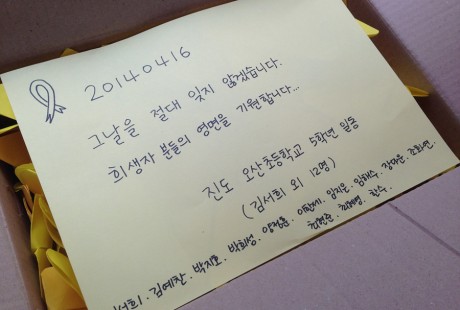 20140416
그날을 절대 잊지 않겠습니다.
희생자 분들의 영면을 기원합니다...
진도 오산초등학교 5학년 일동
(김서희 외 12명)
김서희. 김예찬. 박지호. 박희성. 양정훈. 이한세. 임지은. 임태수. 장여운. 조화연.
최현준. 최혜영. 한수.